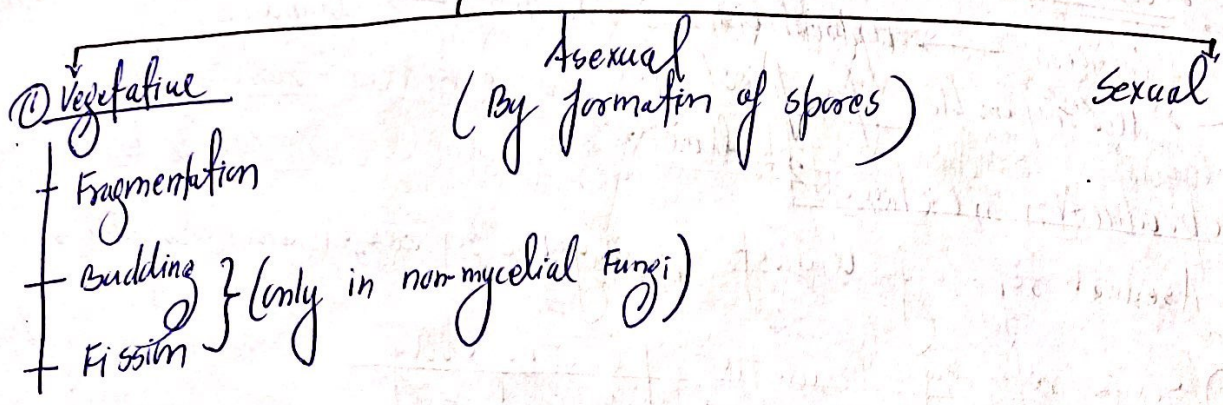 ① Vegetative
Asexual
(By formation of spores)
Sexual
Fragmentation
Budding } (only in non-mycelial Fungi)
Fission